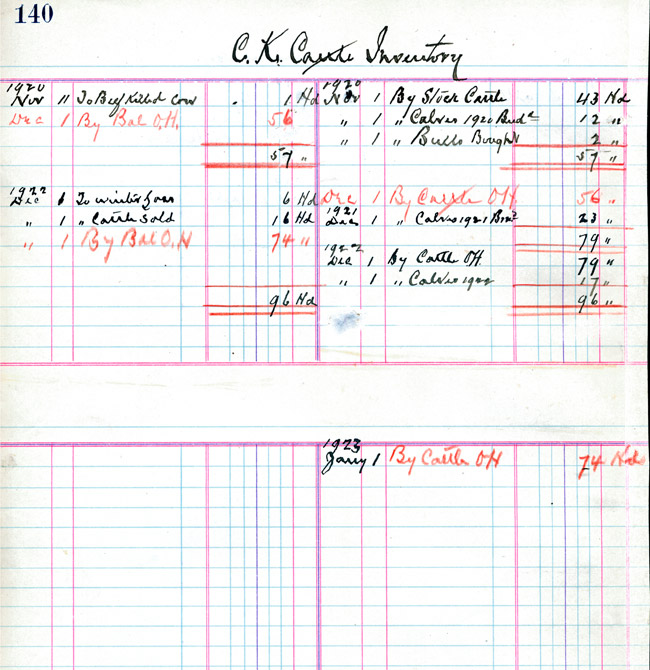 140
C. K. Cattle Inventory
1920
Nov 11 To Beef Killed Cow 1 Hd
Dec 1 By Bal O.H. 56
57 "
1922
Dec 1 To winter loss 6 Hd
" 1 " Cattle Sold 16 Hd
" 1 By Bal O.H 74 "
96 Hd
1920
Nov 1 By Stock Cattle 43 Hd
" 1 " Calves 1920 12 "
" 1 " Bulls Bought 2 "
57 "
Dec 1 By Cattle OH 56 "
1921
Dec 1 " Calves 1921 23 "
79 "
1922
Dec 1 By Cattle OH 79 "
" 1 " Calves 1922 17 "
96 "
1923
Jany 1 By Cattle OH 74 Hd